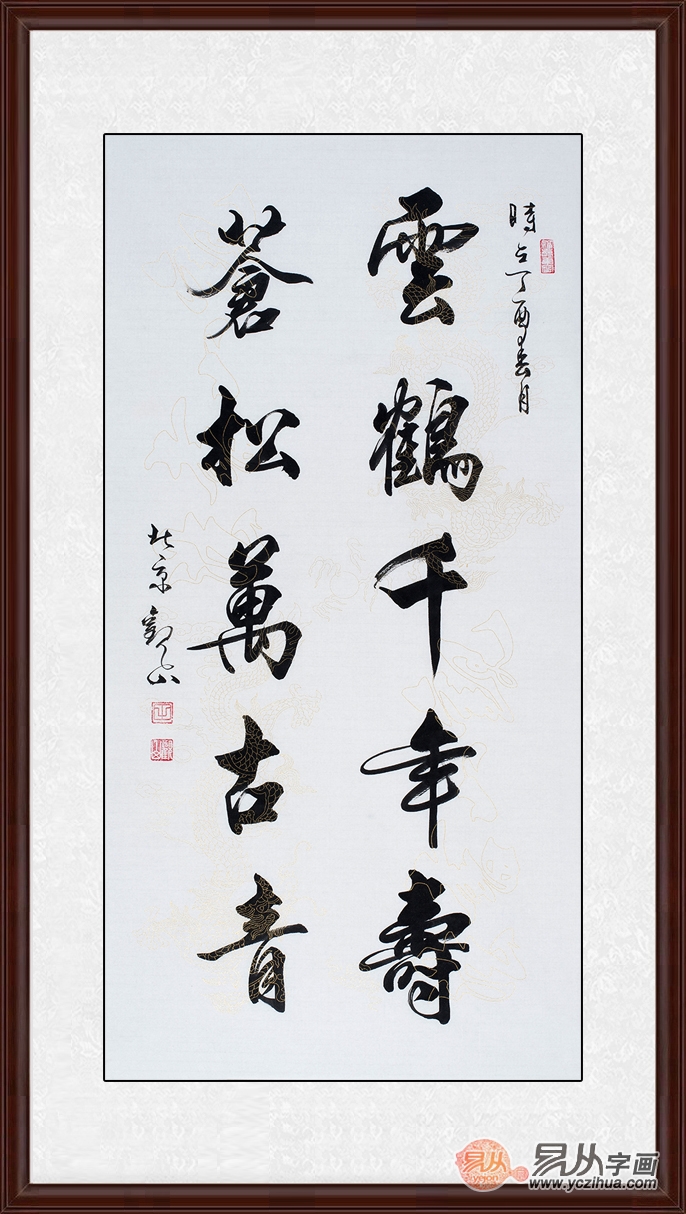 時在丁酉春月
雲鶴千年壽
蒼松萬古青
北京觀山
易从字画
www.yczihua.com